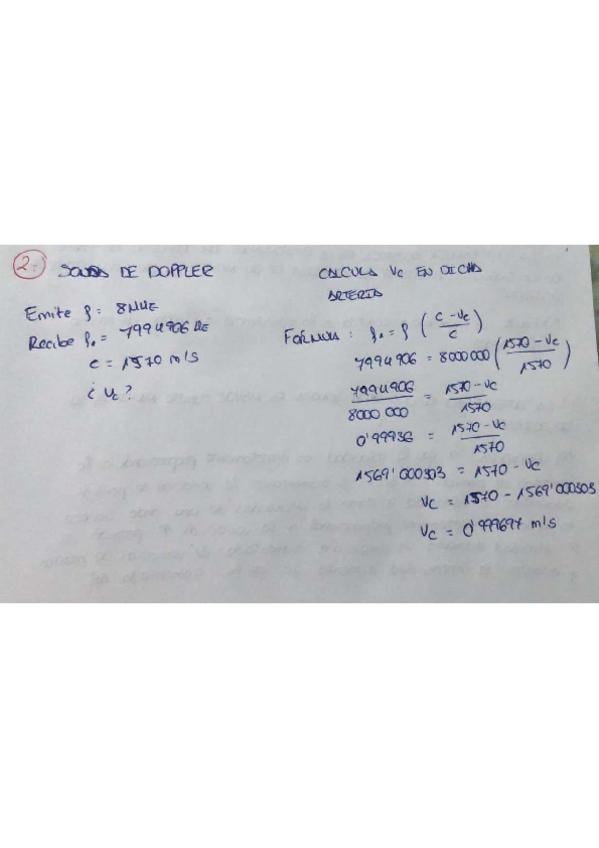 2.-
SONDA DE DOPPLER
Emite f = 8MHz
Recibe f₁ = 7994906 Hz
c = 1570 m/s
¿ Vc?
CALCULA Vc EN DICHA
ARTERIA
FÓRMULA : f₁ = f (c - Vc / c)
7994906 = 8000000 (1570 - Vc / 1570)
7994906 / 8000000 = 1570 - Vc / 1570
0'99936 = 1570 - Vc / 1570
1569'000303 = 1570 - Vc
Vc = 1570 - 1569'000303
Vc = 0'999697 m/s